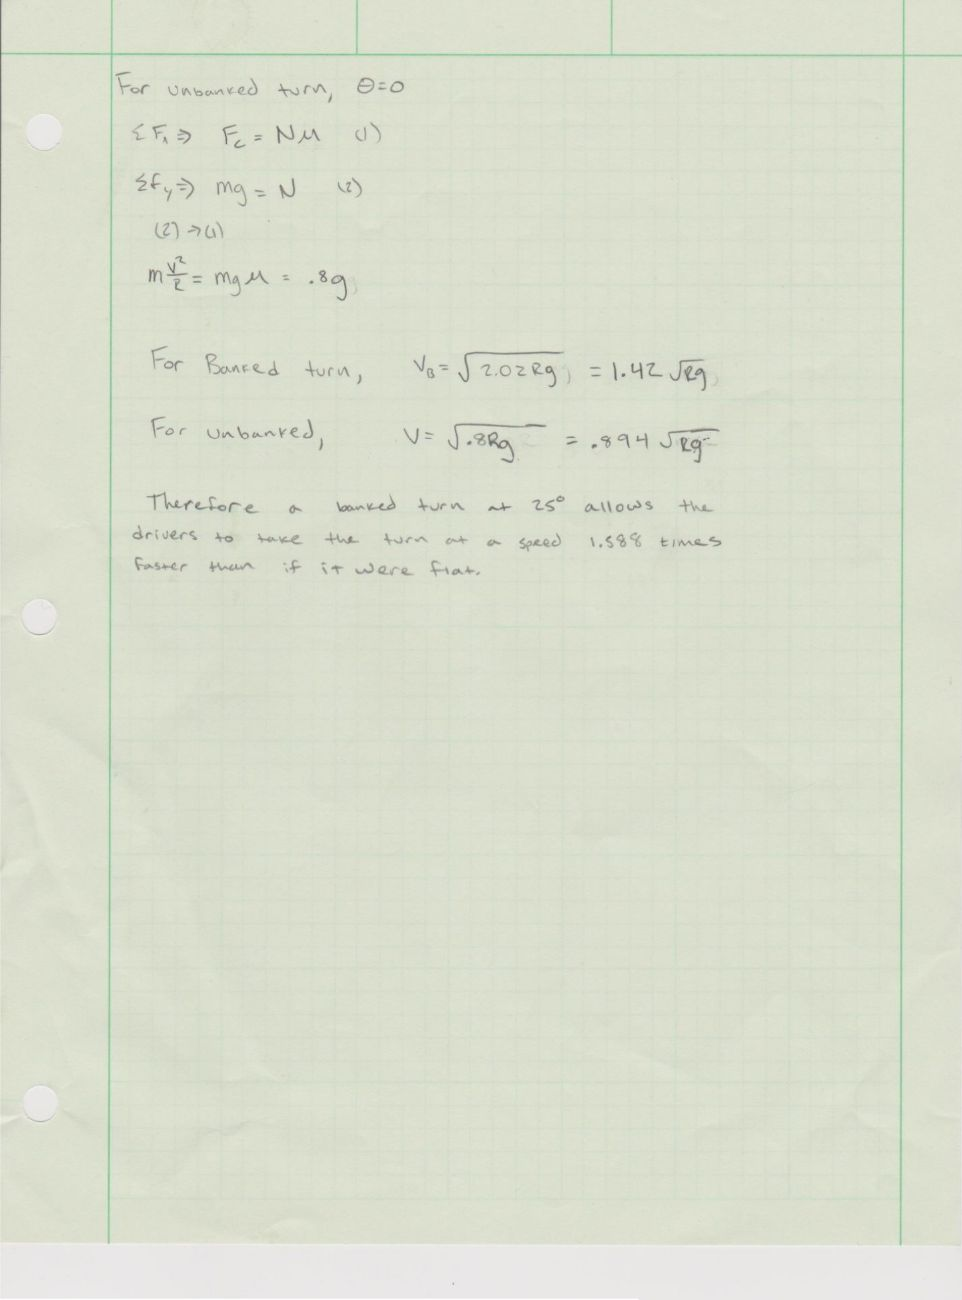 For unbanked turn, Θ=0
ΣFₓ ⇒ F_c = Nμ (1)
Σf_y ⇒ mg = N (2)
(2) → (1)
m v²/R = mgμ = .8g
For Banked turn, V_B = √2.02Rg = 1.42 √Rg
For unbanked, V = √.8Rg = .894 √Rg
Therefore a banked turn at 25° allows the
drivers to take the turn at a speed 1.588 times
faster than if it were flat.